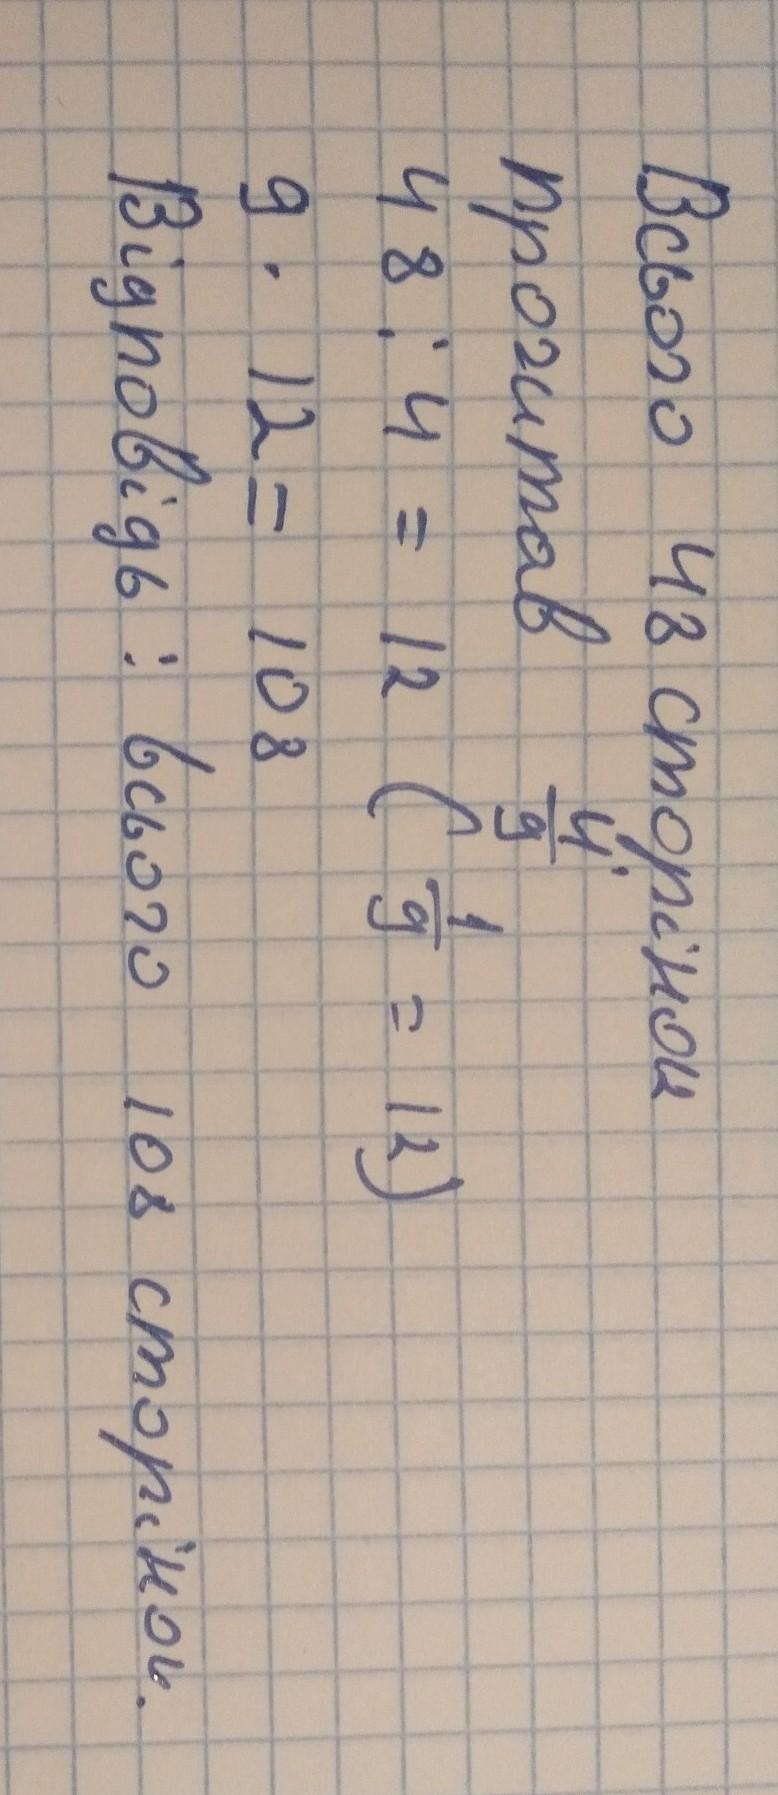 Всього 48 сторінок
прочитав 4/9.
48 : 4 = 12 ( 1/9 = 12)
9 · 12 = 108
Відповідь : всього 108 сторінок.